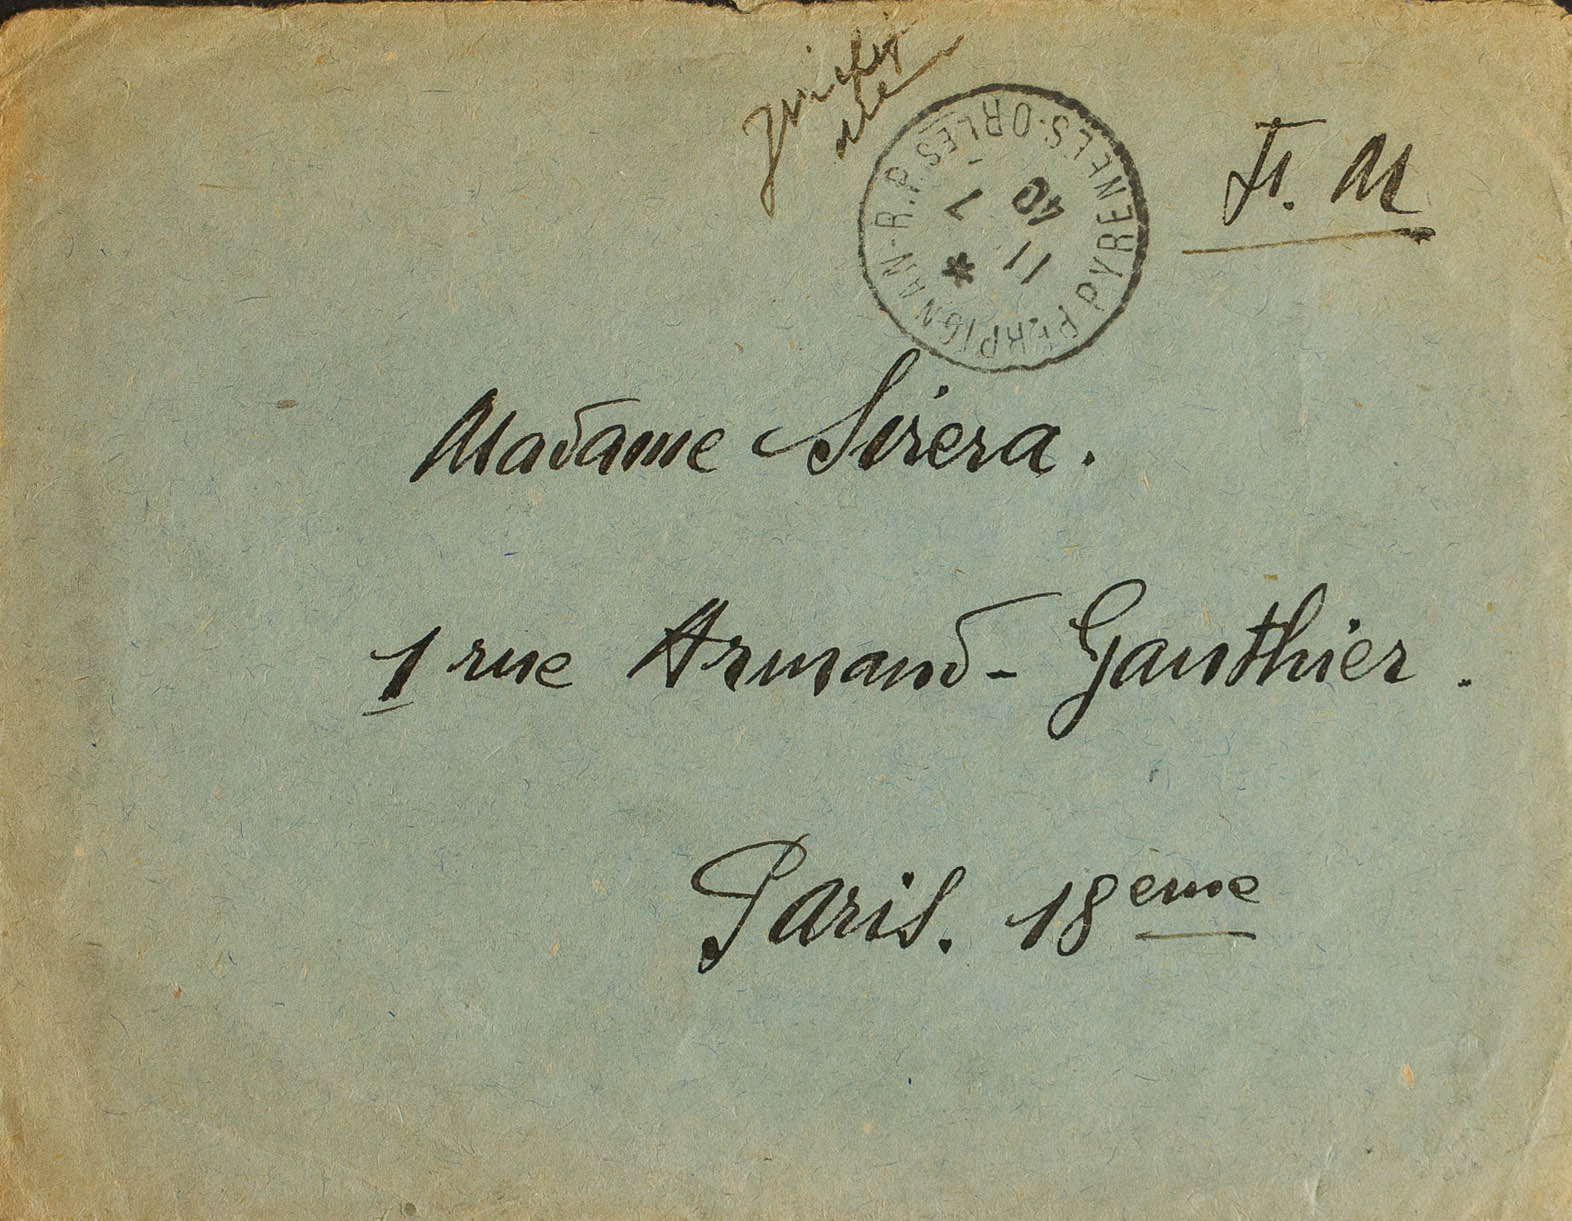 F. M
PERPIGNAN-R.P. PYRENEES-ORLES
* 11
7 40
Madame Sirera.
1 rue Armand-Gauthier.
Paris. 18eme